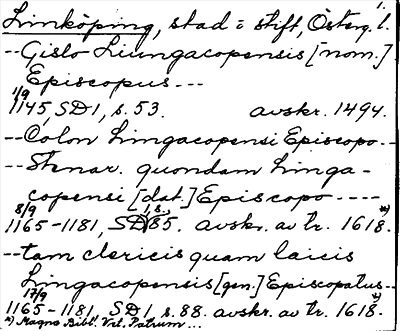 1.
Linköping, stad o stift, Österg. l.
--Gislo Liungacopensis [nom.]
Episcopus---
1/9
1145, SD1, s. 53. avskr. 1494.
--Colon Lingacopensi Episcopo--
--Stenar. quondam Linga-
copensi [dat.] Episcopo----
8/9 1, s. *)
1165-1181, SD 85. avskr. av tr. 1618.
--tam clericis quam laicis
Lingacopensis [gen.] Episcopatus--
17/9 *)
1165-1181, SD1, s. 88. avskr. av tr. 1618.
*) Magna Bibl. Vet. Patrum...